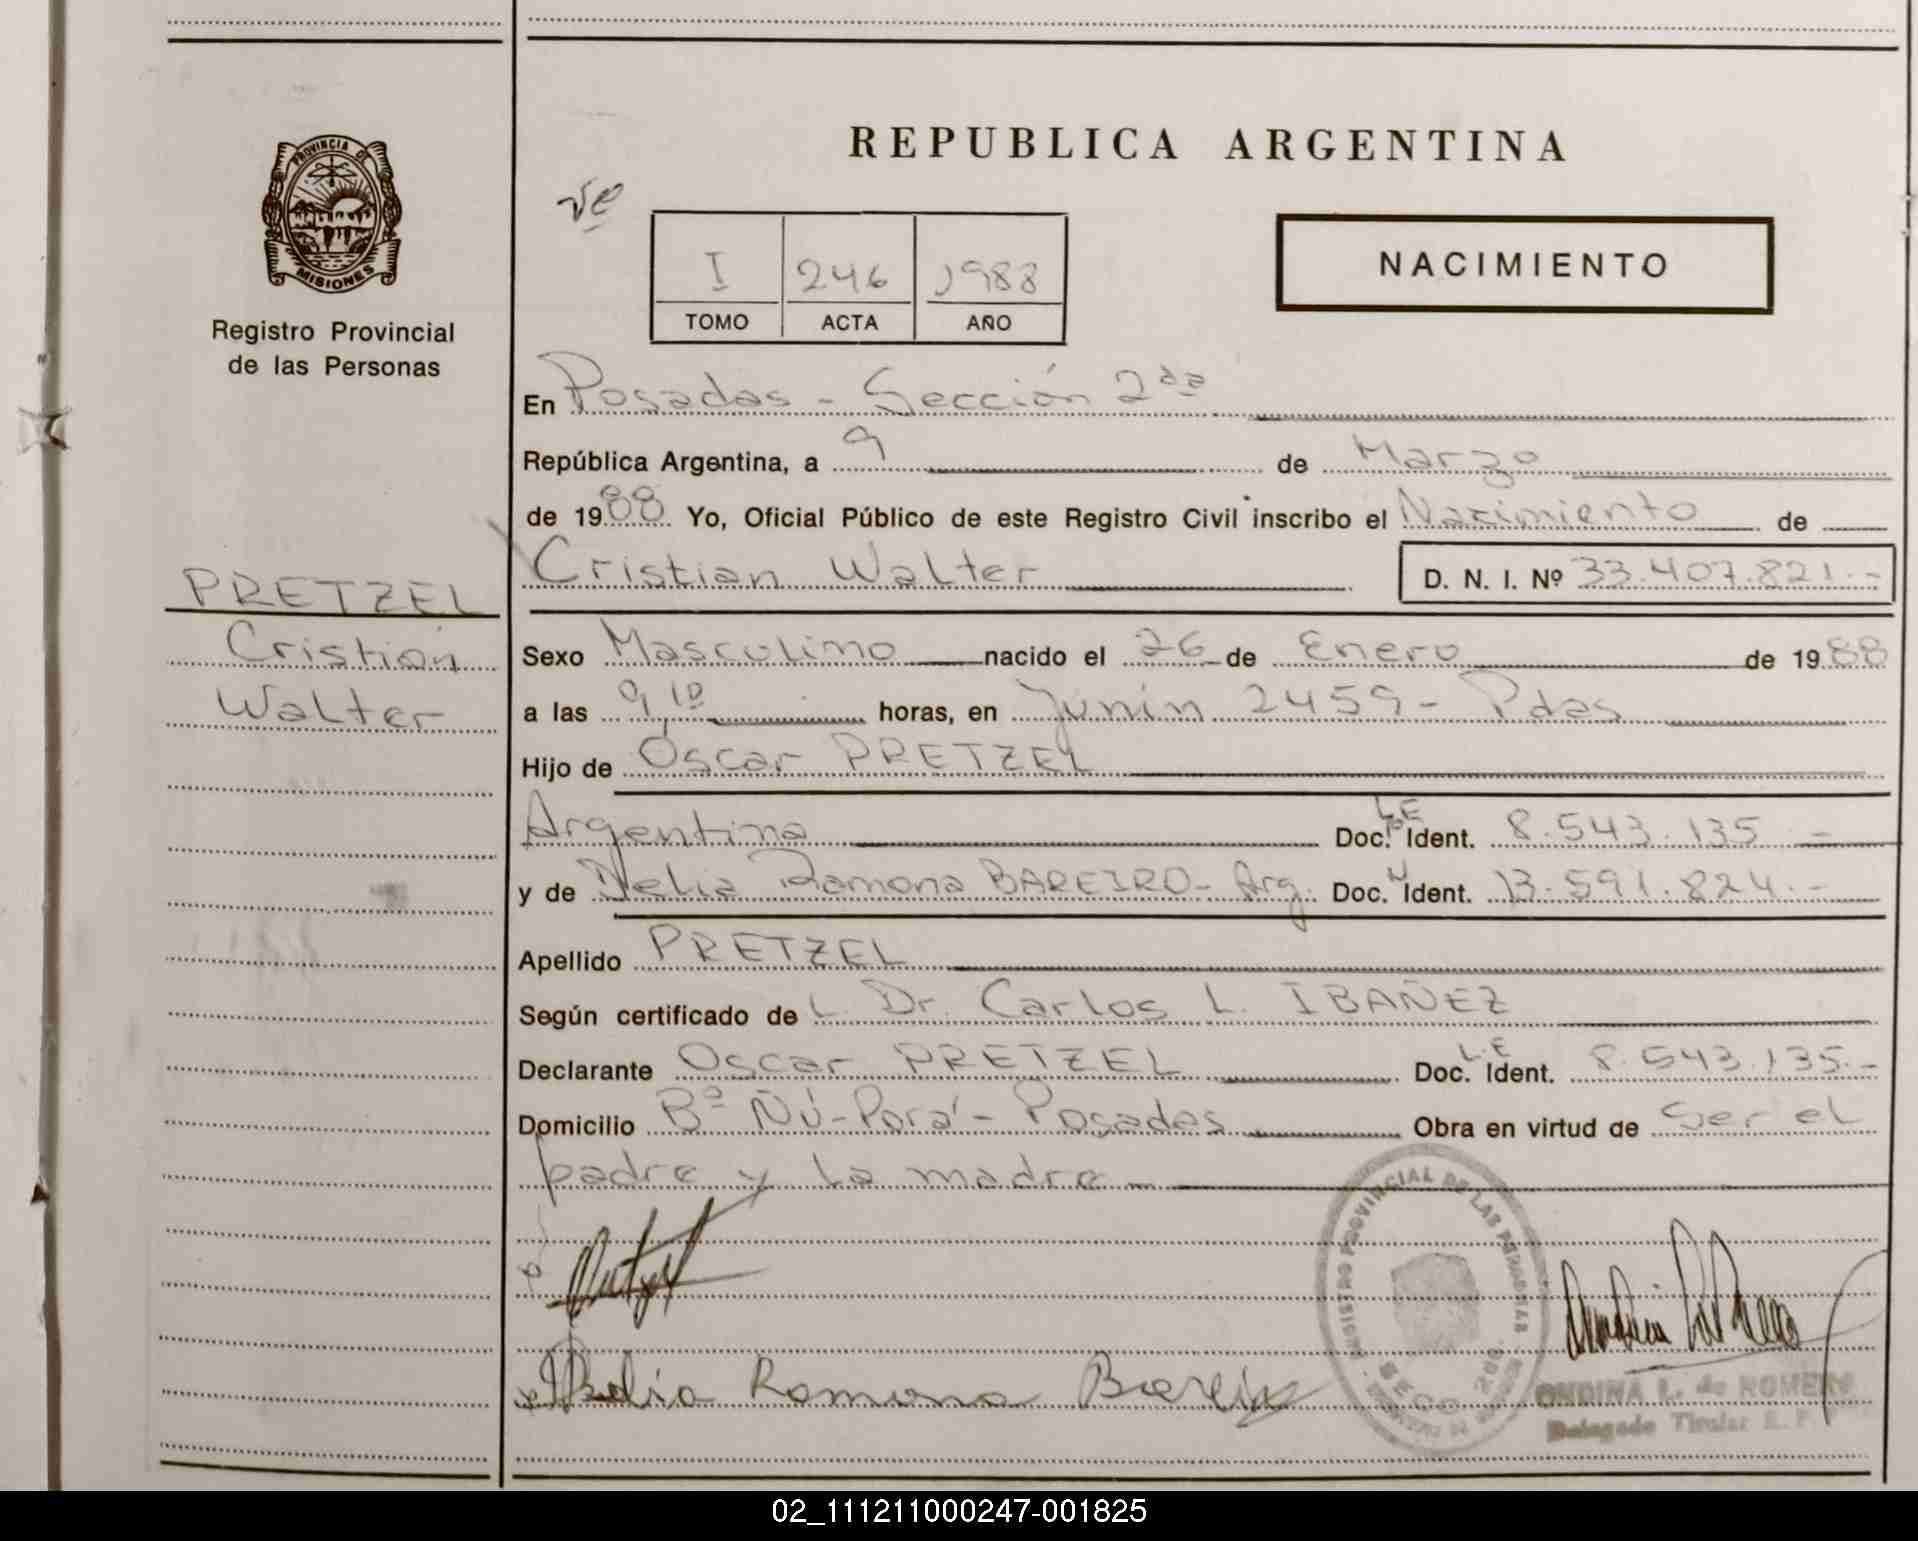 REPUBLICA ARGENTINA
PROVINCIA DE
MISIONES
Registro Provincial
de las Personas
I 246 1988
TOMO ACTA AÑO
NACIMIENTO
En Posadas - Sección 2da
República Argentina, a 9 de Marzo
de 1988 Yo, Oficial Público de este Registro Civil inscribo el Nacimiento de
Cristian Walter D. N. I. Nº 33.407.821.-
PRETZEL
Cristian
Walter
Sexo Masculino nacido el 26 de Enero de 1988
a las 9,10 horas, en Junín 2459 - Pdas
Hijo de Oscar PRETZEL
Argentina Doc. L.E Ident. 8.543.135.-
y de Delia Ramona BAREIRO - Arg. Doc. N Ident. 13.591.824.-
Apellido PRETZEL
Según certificado de L. Dr. Carlos L. IBAÑEZ
Declarante Oscar PRETZEL Doc. L.E Ident. 8.543.135.-
Domicilio Bº Ñú-Porá - Posadas Obra en virtud de ser el
padre y la madre -
Delia Ramona Bareiro
REGISTRO PROVINCIAL DE LAS PERSONAS
SECC. 2DA.
ONDINA L. de ROMERO
Delegado Titular
02_111211000247-001825